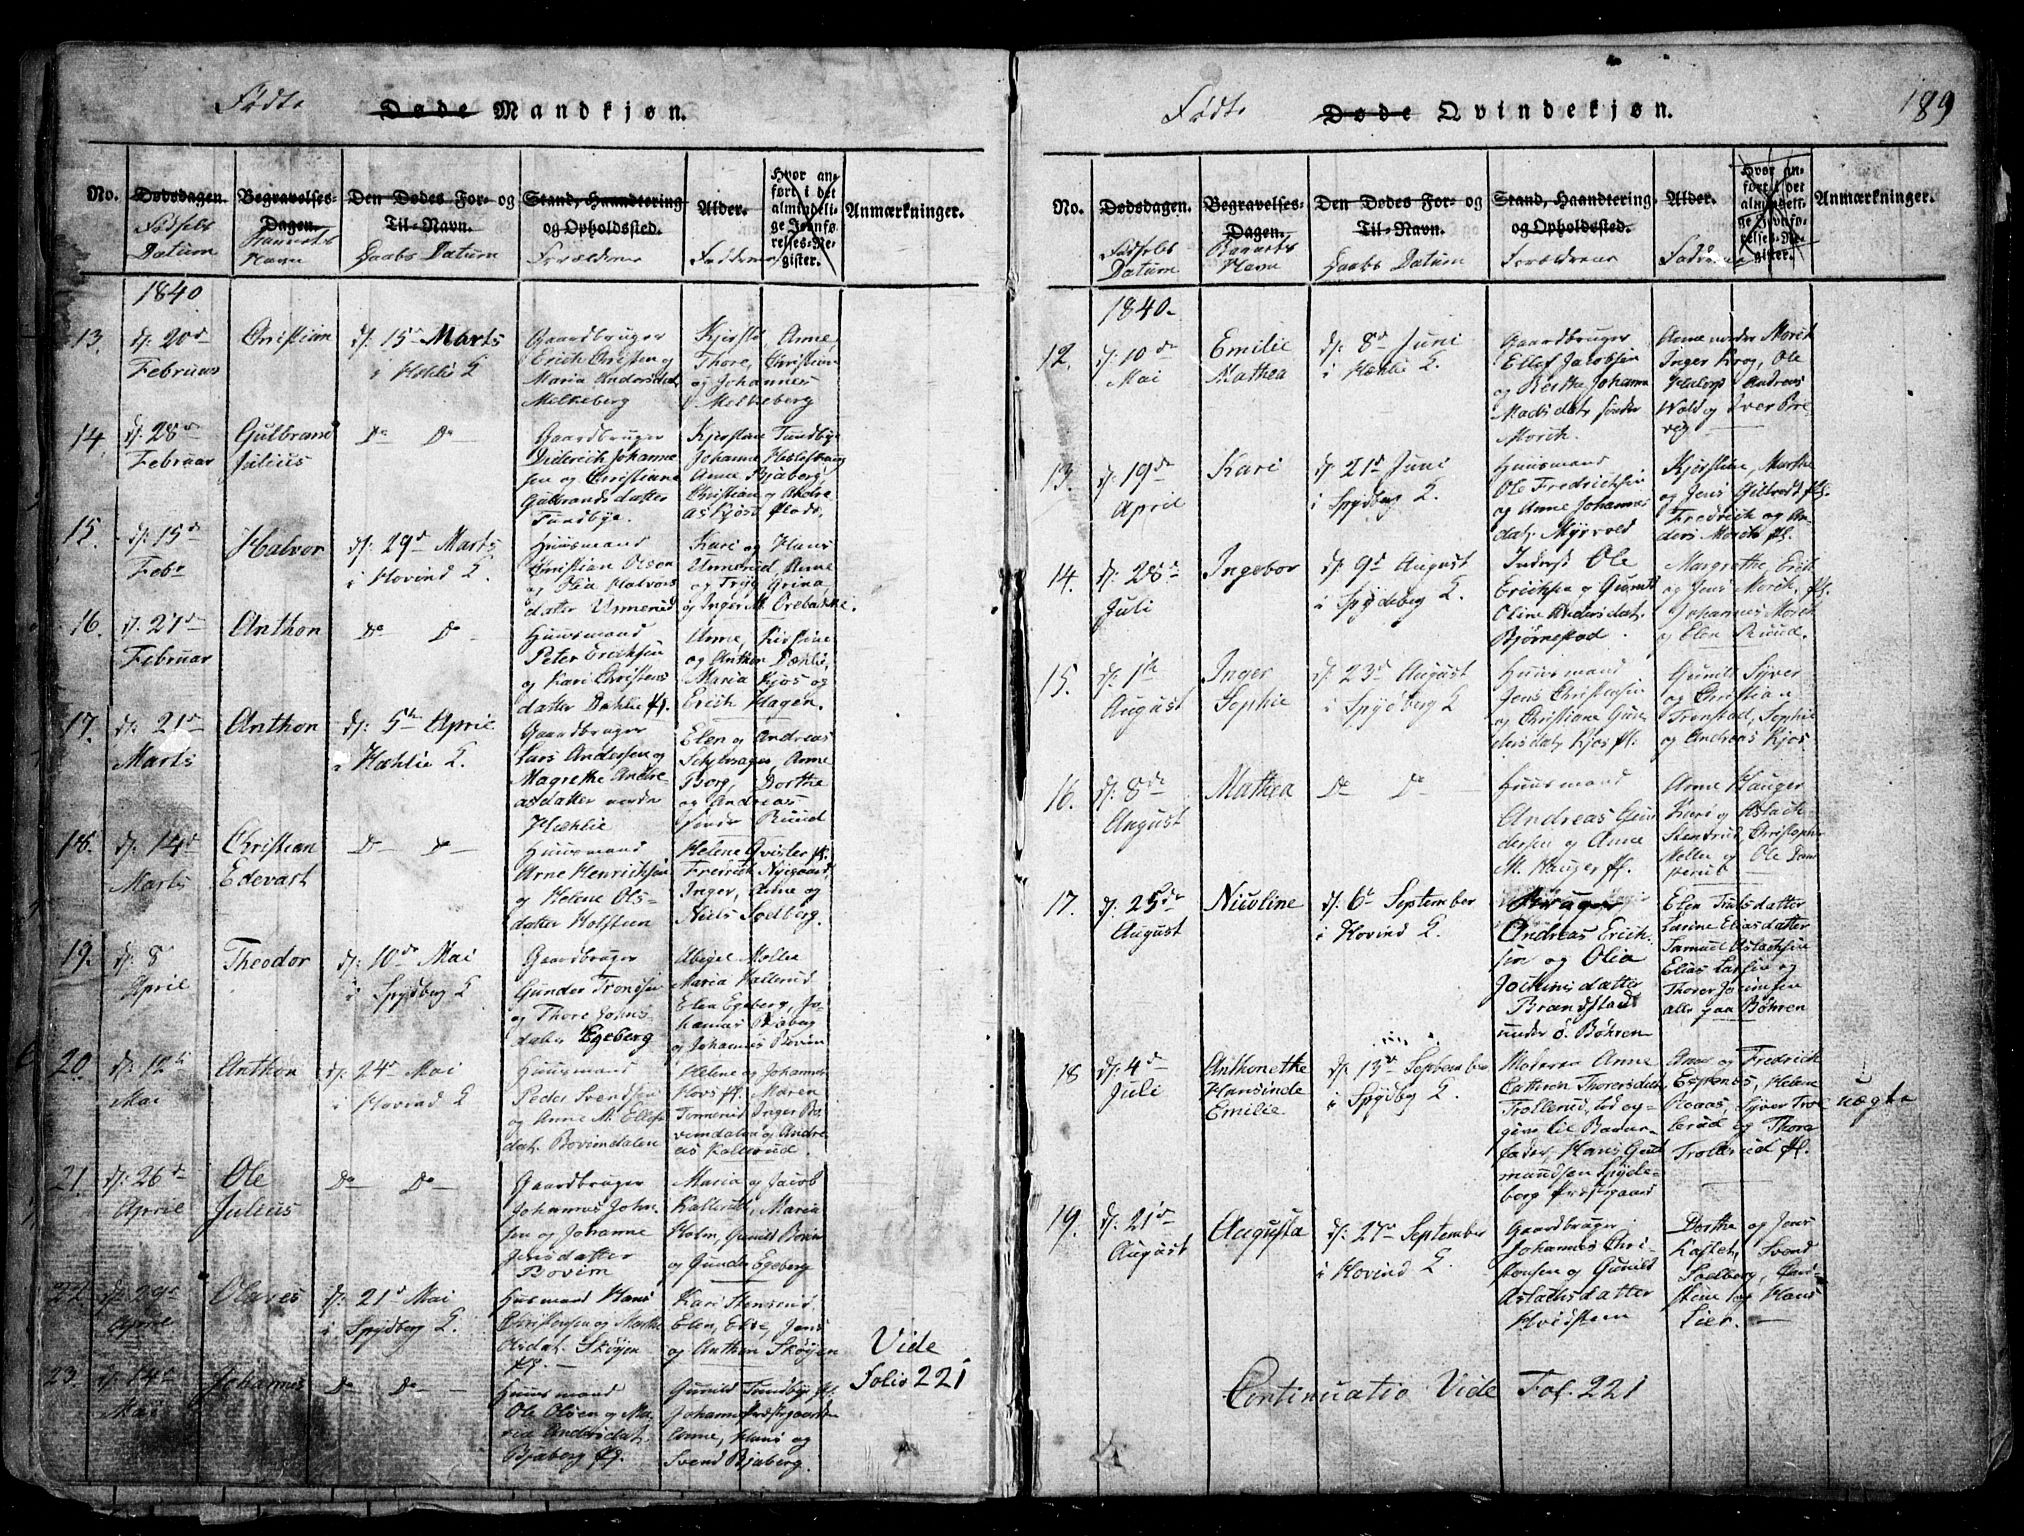 Fødte Døde Mandkjøn.
No. Dødsdagen. Begravelses-Dagen. Den Dødes For- og Til-Navn. Stand, Haandtering og Opholdssted. Alder. Hvor anført i det almindelige Jevnførelses-Register. Anmærkninger.
Fødsels Datum Barnets Navn Daabs Datum Forældrene Fadderne
1840
13. d: 20d Februar
Christian
d: 15d Marts
i Hæhlie K
Gaardbruger
Erich Christen
Maria Andersdat,
Melkeberg
Kjersti, Anne
Thore, Christian
og Johannes
Melkeberg
14. d: 28d Februar
Gulbrand
Julius
Do Do
Gaardbruger
Diderich Johanne
sen og Christianne
Gulbrandsdatter
Tundbye.
Kjerstine Tundbye
Johanne
Anne Bjaberg,
Christian og Andre
Askjøst
15. d: 15d Febr
Halvor
d: 29d Marts
i Hovind K.
Huusmand
Christian Olsen
og Olia Halvors
datter Unnerud
Kari og Hans
Unnerud, Anne
og Tryg Grina
og Inger M. Orebakke.
16. d: 27d Februar
Anthon
Do Do
Huusmand
Peter Erichsen
og Kari Christens
datter Dæhlie pl.
Anne, Kirstine
og Anthon Dæhlie,
Maria Kjos og
Erich Hagen.
17. d: 21d Marts
Anthon
d: 5te April
i Hæhlie K.
Gaardbruger
Lars Andersen og
Magrethe Andre-
asdatter nordre
Hæhlie
Elen og Andreas
Borg, Anne
Dorthe
og Andreas
Ruud
18. d: 14d Marts
Christian
Edevart
Do Do
Huusmand
Arne Henrichsen
og Helene Ols-
datter Holstein
Helene Qvister pl.
Fredrich Nygaard,
Inger, Anne og
Niels Soelberg.
19. d: 8 April
Theodor
d: 10de Mai
i Spydberg K
Gaardbruger
Gunder Trondsen
og Thore Johns-
datter Egeberg
Abigel Mollie
Maria Kallerud
Elen Egeberg, Jo-
hannes Bjaberg
og Johannes Bovim
20. d: 12te Mai
Anthon
d: 24d Mai
i Hovind K
Huusmand
Peder Svendsen
og Anne M. Ellefs
dat. Bovimdalen
Helene og Johannes
Hovs pl. Maren
Tommerud, Inger Bo-
vimdalen og Andre
as Kallerud.
21. d: 26d April
Ole
Julius
Do Do
Gaardbruger
Johannes John-
sen og Johanne
Jensdatter
Bovim
Maria og Jacob
Kallerud, Maria
Holm, Gunild Bovim
og Gunder Egeberg
22. d: 29d April
Olaves
d: 21d Mai
i Spydberg K.
Husmand Hans
Christensen og Marthe
Olsdat. Skøyen
pl.
Kari Stensrud
Elen, Else, Jens
og Anthon Skøyen
Vide
Folio 221
23 d: 14d Mai
Johannes
Do Do
Huusmand
Ole Olsen og Ma-
ria Andersdat.
Bjaberg pl.
Gunild Tundbye pl.
Johanne Præstgaarden
Anne, Hans og
Svend Bjaberg.
Fødte Døde Qvindekjøn. 189
No. Dødsdagen. Begravelses-Dagen. Den Dødes For- og Til-Navn. Stand, Haandtering og Opholdssted. Alder. Hvor anført i det almindelige Jevnførelses-Register. Anmærkninger.
Fødsels Datum Barnets Navn Daabs Datum Forældrene Fadderne
1840.
12. d: 10de Mai
Emilie
Mathea
d: 8d Juni
i Hæhlie K.
Gaardbruger
Ellef Jacobsen
og Berthe Johanne
Madsdat, sønder
Morck.
Anne nordre Morck
Inger Krog, Ole
Andreas
Wold og Iver Ore
vig
13. d: 19de April
Kari
d: 21d Juni
i Spydberg K.
Huusmand
Ole Fredrichsen
og Anne Johannes
dat, Myrvold
Kjerstine, Marthe
og Jens
Fredrich og An-
ders Morck pl.
14. d: 28d Juli
Ingebor
d: 9d August
i Spydeberg K.
Inderst Ole
Erichsen og
Oline Andersdat,
Bjørnestad
Margrethe, Erich
og Jens Morck, pl.
Johannes Morck
og Elen Ruud.
15. d: 1te August
Inger
Sophie
d: 23d August
i Spydberg K
Huusmand
Jens Christensen
og Christiane Gun-
dersdat, Kjos pl.
Gunild Syver
og Christian
Tronstad, Sophie
og Andreas Kjos.
16. d: 8de August
Mathea
Do Do
Huusmand
Andreas Gun-
dersen og Anne
M. Hauger pl.
Anne Hauger
Kari og Aslach
Stendrud, Christopher
Mollen og Ole
17. d: 25de August
Nicoline
d: 6te September
i Hovind K.
Bruger
Andreas Erich-
sen og Olia
Jochumsdatter
Brandstad
under ö. Bøhren
Elen Trulsdatter
Karine Eliasdatter
Samuel Aslachsen
Elias Larsen og
Thorer Jocumsen
alle paa Bøhren
18 d: 4de Juli
Anthonethe
Hansinde
Emilie
d: 13de September
i Spydberg K.
Moderen Anne
Cathrin Thorersdat,
Trollerud, ud og-
given til Barne-
fader, Hans Gud
mundsen Spyde-
berg Præstgaard
Anne og Fredrich
Espenæs, Helene
Roaas, Syver Trol
lerud og Thora
Trollerud pl.
uægte
19. d: 21d August
Augusta
d: 27de September
i Hovind K.
Gaardbruger
Johannes Chri-
stensen og Gunild
Aslachsdatter
Hvidsteen
Dorthe og Jens
Kastet, Svend
Soelberg,
og Hans
Lier.
Continuatio Vide Fol. 221